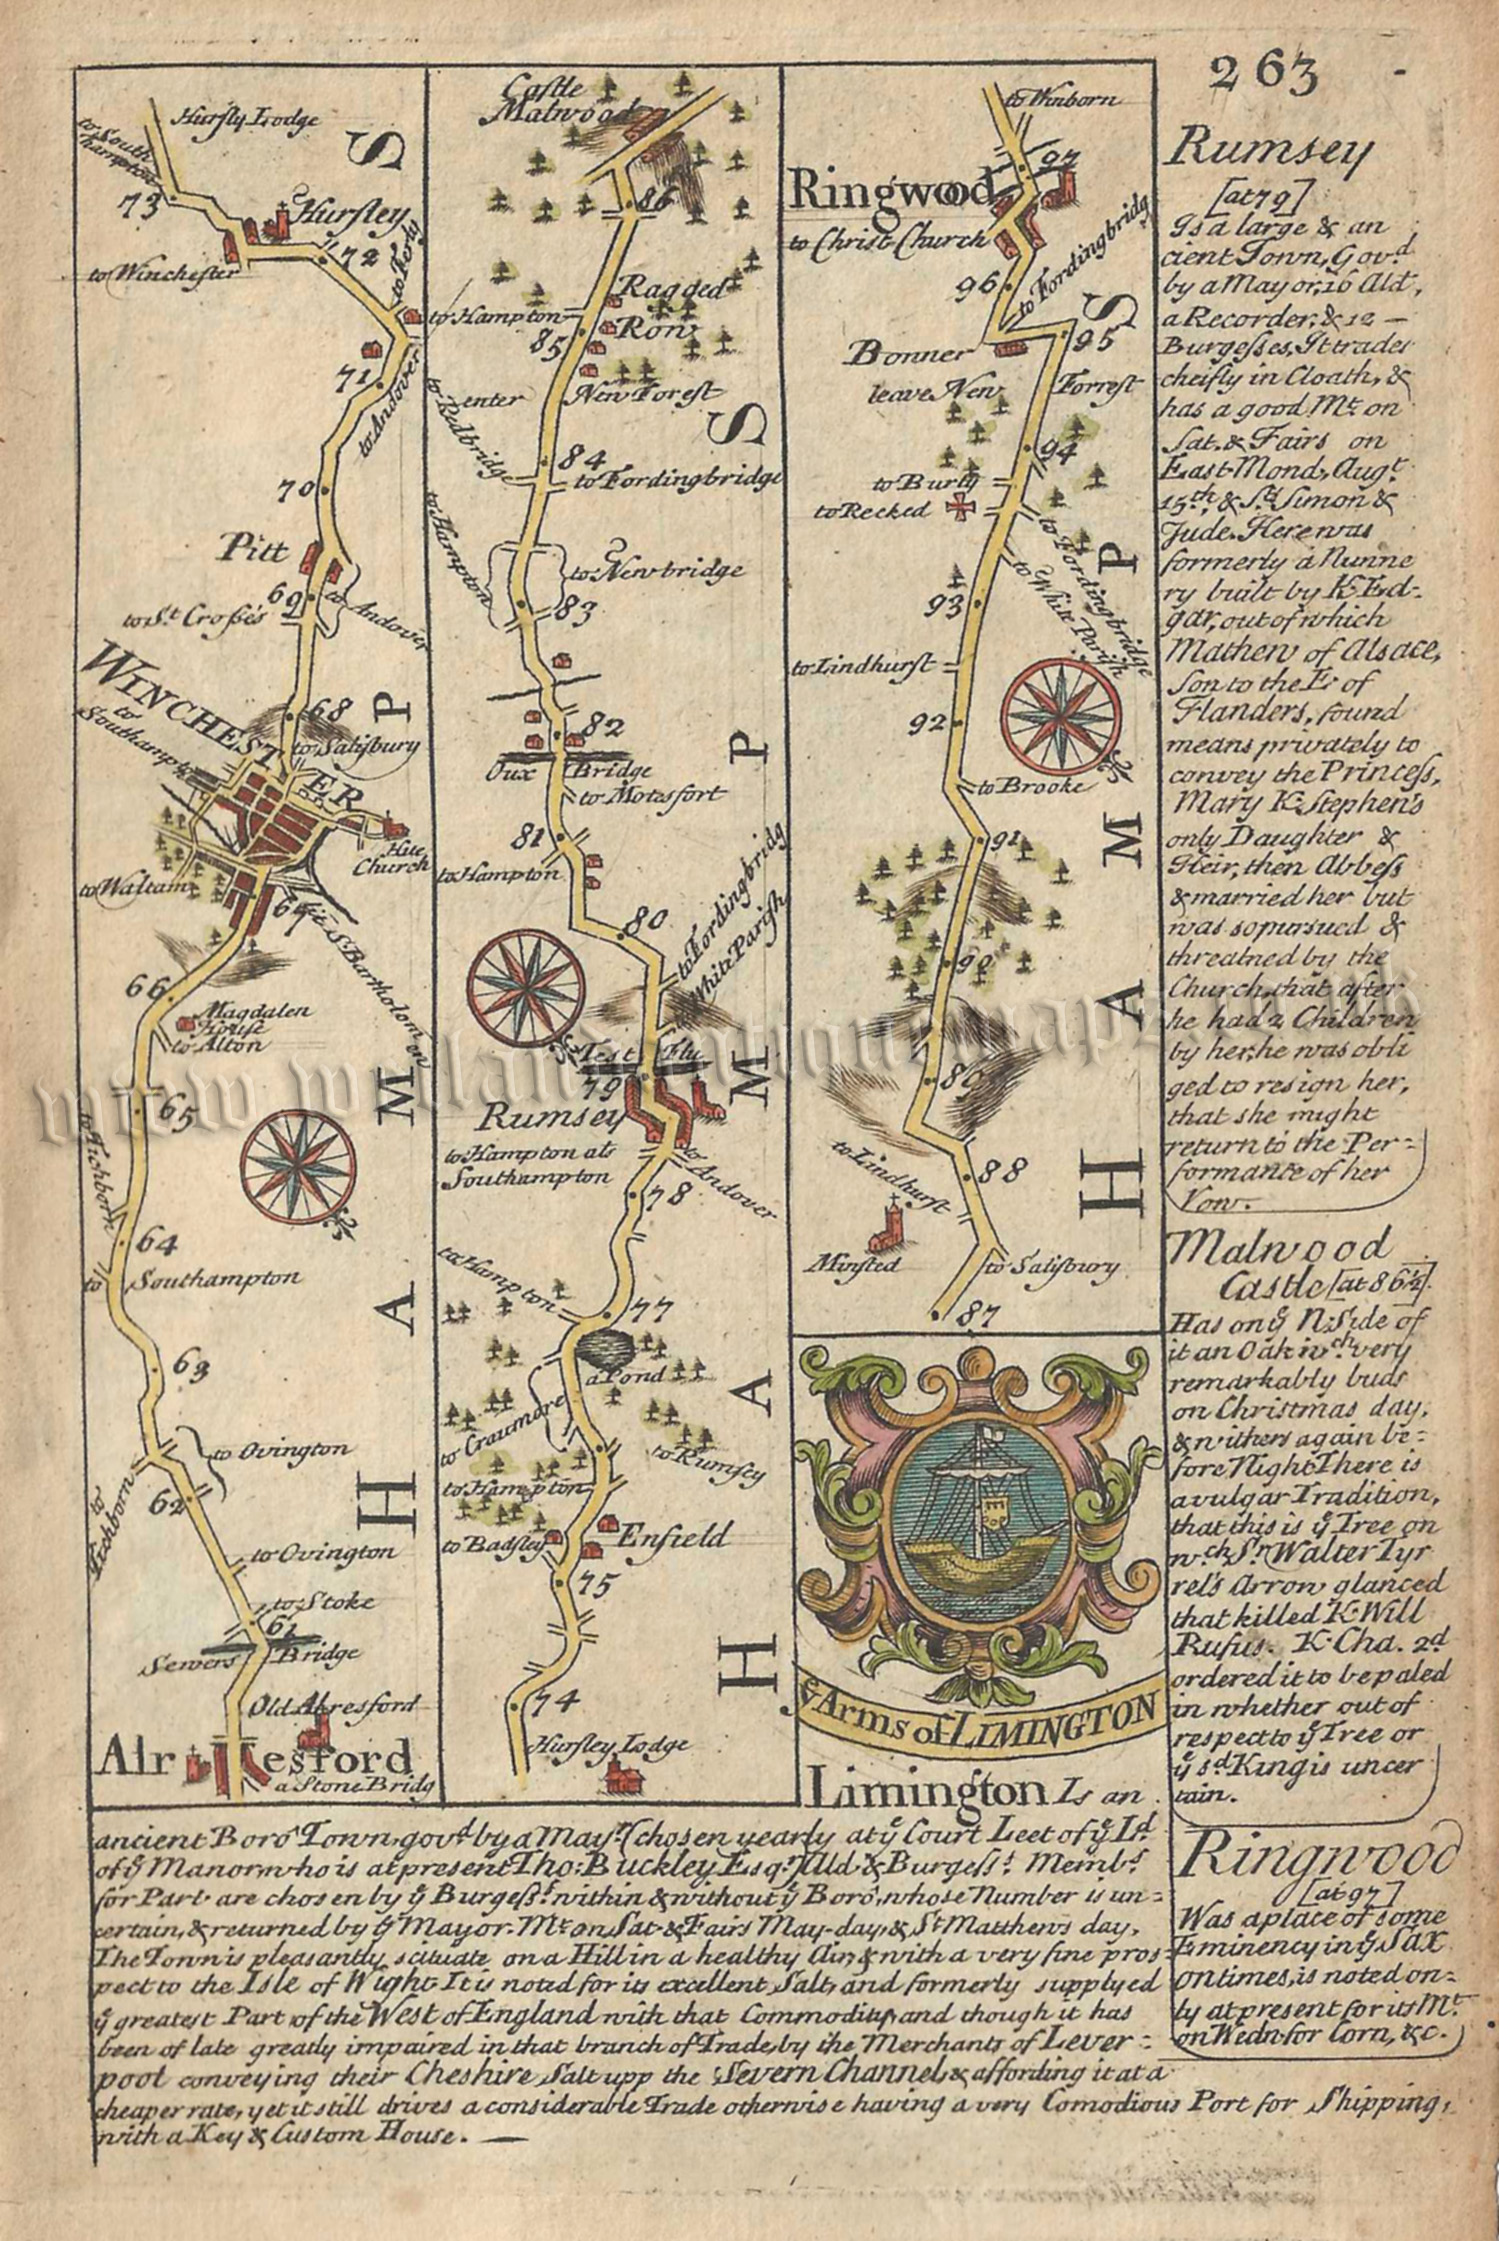 263
Hursly Lodge
to South
hampton
73
Hursley
72
to Winchester
71
to Andover
70
Pitt
69
to St Crosses
to Andover
68
WINCHESTER
to
Southampton
to Salisbury
Hite
Church
to Waltam
67
66
Magdalen
House
to Alton
65
to Tichborn
64
to Southampton
63
to Ovington
62
to
Tichborn
to Ovington
to Stoke
61
Sewers Bridge
Old Abresford
Alresford
a Stone Bridg
HAMPS
Castle
Malwood
86
to Hampton
Ragged
Row
85
enter New Forest
to Redbridge
84
to Fordingbridge
to Hampton
to Newbridge
83
82
Oux Bridge
to Motesfort
81
to Hampton
80
to Fordingbridg
White Parish
Test Flu
79
Rumsey
to Hampton als
Southampton
to Andover
78
to Hampton
77
a Pond
to Cranmore
to Rumsey
to Hampton
to Badsley
Enfield
75
74
Hursley Lodge
HAMPS
to Winborn
97
Ringwood
to Christ Church
96
to Fordingbridg
95
Bonner
leave New Forrest
94
to Burly
to Recked
to Fordingbridge
to White Parish
93
to Lindhurst
92
to Brooke
91
90
89
88
to Lindhurst
Minsted
to Salisbury
87
HAMPS
ye Arms of LIMINGTON
Rumsey
[at 79]
Is a large & an
cient Town, Govd
by a Mayor, 16 Ald,
a Recorder, & 12 —
Burgesses, It trades
cheifly in Cloath, &
has a good Mt on
Sat. & Fairs on
East-Mond, Augt
15th, & St Simon &
Jude. Here was
formerly a Nunne
ry built by K: Ed-
gar, out of which
Mathew of Alsace,
Son to the E: of
Flanders, found
means privately to
convey the Princess,
Mary K: Stephen's
only Daughter &
Heir, then Abbess
& married her but
was so pursued &
threatned by the
Church, that after
he had 2 Children
by her, he was obli
ged to resign her,
that she might
return to the Per-
formance of her
Vow.
Malwood
Castle [at 86½]
Has on ye N: Side of
it an Oak wch very
remarkably buds
on Christmas day,
& withers again be-
fore Night There is
a vulgar Tradition,
that this is ye Tree on
wch Sr Walter Tyr
rel's Arrow glanced
that killed K. Will
Rufus. K. Cha. 2d
ordered it to be paled
in whether out of
respect to ye Tree or
ye sd King is uncer
tain.
Ringwood
[at 97]
Was a place of some
Eminency in ye Sax
on times, is noted on-
ly at present for its Mt
on Wedn for Corn, &c.
Limington Is an
ancient Boro' Town, govd by a Mayr (chosen yearly at ye Court Leet of ye Ld
of ye Manor, who is at present Tho: Buckley Esqr) Ald: & Burgesss. Membrs
for Part are chosen by ye Burgesss within & without ye Boro', whose Number is un-
certain, & returned by ye Mayor. Mt on Sat & Fairs May-day, & St Matthews day,
The Town is pleasantly scituate on a Hill in a healthy Air, & with a very fine pros-
pect to the Isle of Wight It is noted for its excellent Salt, and formerly supplyed
ye greatest Part of the West of England with that Commodity, and though it has
been of late greatly impaired in that branch of Trade, by the Merchants of Lever-
pool conveying their Cheshire Salt upp the Severn Channel, & affording it at a
cheaper rate, yet it still drives a considerable Trade otherwise having a very Comodious Port for Shipping,
with a Key & Custom House. —